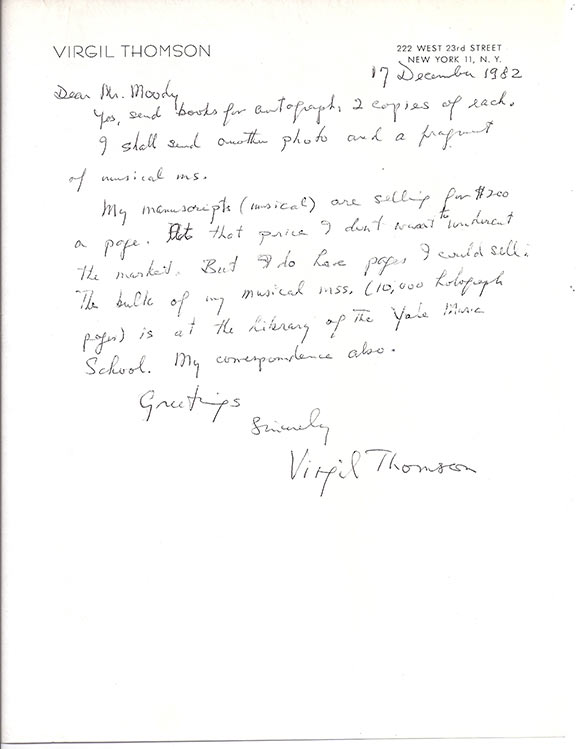 VIRGIL THOMSON
222 WEST 23rd STREET
NEW YORK 11, N. Y.
17 December 1982
Dear Mr. Moody
Yes, send books for autograph, 2 copies of each.
I shall send another photo and a fragment
of musical ms.
My manuscripts (musical) are selling for $200
a page. At that price I don't want to undercut
the market. But I do have pages I could sell.
The bulk of my musical mss. (10,000 holograph
pages) is at the Library of The Yale Music
School. My correspondence also.
Greetings
Sincerely
Virgil Thomson